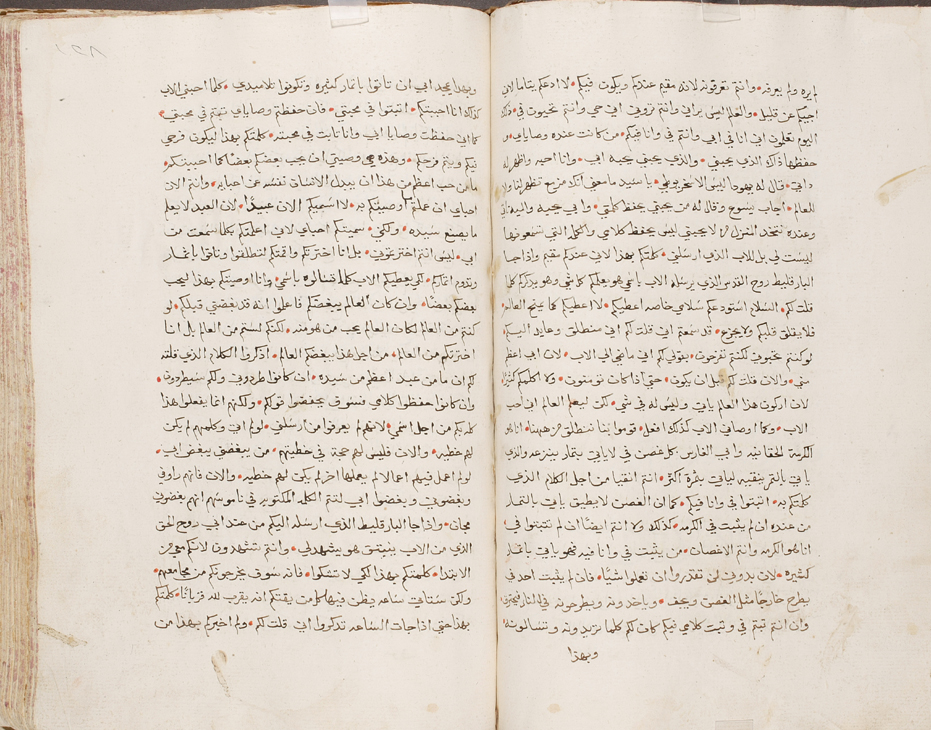 يره ولم يعرفه وانتم تعرفونه لانه مقيم عندكم ويكون فيكم لا ادعكم يتاما لاني
اجيكم عن قليل والعالم ليس يراني وانتم تروني اني حي وانتم تحيون في ذلك
اليوم تعلمون اني انا في ابي وانتم في وانا فيكم من كانت عنده وصاياي
حفظها ذاك الذي يحبني والذي يحبني يحبه ابي وانا احبه واظهر له
ذاتي قال له يهوذا ليس الاسخريوطي يا سيد ما معني انك مزمع تظهر لنا ولا
للعالم اجاب يسوع وقال له من يحبني يحفظ كلمتي وابي يحبه واليه ناتي
وعنده نتخد المنزل من لا يحبني ليس يحفظ كلامي والكلمه التي تسمعونها
ليست لي بل للاب الذي ارسلني كلمتكم بهذا لاني عندكم مقيم واذا جا
البارقليط روح القدس الذي يرسله الاب باسمي هو يعلمكم كل شي وهو يذكركم كلما
قلت لكم السلام استودعكم سلامي خاصه اعطيكم لا اعطيكم كما يمنح العالم
فلا يقلق قلبكم ولا يجزع قد سمعتم اني قلت لكم اني منطلق وعايد اليكم
لو كنتم تحبوني لكنتم تفرحون بقولي لكم اني ماضي الي الاب لان ابي اعظم
مني والان قلت لكم قبل ان يكون حتي اذا كان تومنون ولا اكلمكم كثيرا
لان اركون هذا العالم ياتي وليس له في شي لكن ليعلم العالم اني احب
الاب وكما اوصاني الاب كذلك افعل قوموا بنا ننطلق من ههنا انا هو
الكرمه الحقانيه وابي الفارس كل غصن في لا ياتي بثمار ينزعه والذي
ياتي بالثمر ينقيه لياتي بثمرة اكثر انتم انقيا من اجل الكلام الذي
كلمتكم به اثبتوا في وانا فيكم كما ان الغصن لا يطيق ياتي بالثمار
من عنده ان لم يثبت في الكرمه كذلك ولا انتم ايضا ان لم تثبتوا في
انا هو الكرمه وانتم الاغصان من يثبت في وانا فيه فهو ياتي باثمار
كثيره لان بدوني لن تقدروا ان تعملوا شيئا فان لم يثبت احد في
يطرح خارجا مثل الغصن ويجف وياخدونه ويطرحونه في النار فيحترق
وان انتم ثبتم في وثبت كلامي فيكم كان لكم كلما تريدونه وتسالونه
وبهذا
وبهذا يمجد ابي ان تاتوا باثمار كثيره وتكونوا تلاميدي كلما احبني الاب
كذلك انا احببتكم اثبتوا في محبتي فان حفظتم وصاياي ثبتم في محبتي
كما اني حفظت وصايا ابي وانا ثابت في محبته كلمتكم بهذا ليكون فرحي
فيكم ويتم فرحكم وهذه هي وصيتي ان يحب بعضكم بعضا كما احببتكم
ما من حب اعظم من هذا ان يبدل الانسان نفسه عن احبايه وانتم الان
احباي ان عملتم اوصيتكم به لا اسميكم الان عبيدا لان العبد لا يعلم
ما يصنع سيده ولكني سميتكم احباي لاني اعلمتكم بكلما سمعت من
ابي ليس انتم اخترتموني بل انا اخترتكم واقمتكم لتنطلقوا وتاتوا باثمار
وتدوم اثماركم لكي يعطيكم الاب كلما تسالونه باسمي وانا اوصيتكم بهذا ليحب
بعضكم بعضا وان كان العالم يبغضكم فاعلموا انه قد بغضني قبلكم لو
كنتم من العالم لكان العالم يحب من هو منه لكنكم لستم من العالم بل انا
اخترتكم من العالم من اجل هذا يبغضكم العالم اذكروا الكلام الذي قلته
لكم ان ما من عبد اعظم من سيده ان كانوا طردوني ولكم سيطردون
وان كانوا حفظوا كلامي فسوف يحفضوا قولكم ولكنهم انما يفعلوا هذا
كله بكم من اجل اسمي لانهم لم يعرفوا من ارسلني لولم اتي وكلمهم لم يكن
لهم خطيه والان فليس لهم حجة في خطيتهم من يبغضني يبغض ابي
لولم اعمل فيهم اعمالا لم يعملها اخر لم يكن لهم خطيه والان فانهم راوني
وبغضوني وبغضوا ابي لتتم الكلمه المكتوبه في ناموسهم انهم بغضوني
مجان واذا جا البارقليط الذي ارسله اليكم من عند ابي روح الحق
الذي من الاب ينبتق هو يشهد لي وانتم تشهدون لانكم معي من
الابتدا كلمتكم بهذا لكي لا تشكوا فانه سوف يخرجوكم من مجامعهم
ولكن ستاتي ساعه يظن فيها كل من يقتلكم انه يقرب لله قربانا كلمتكم
بهذا حتي اذا جات الساعه تدكروا اني قلت لكم ولم اخبركم بهذا من